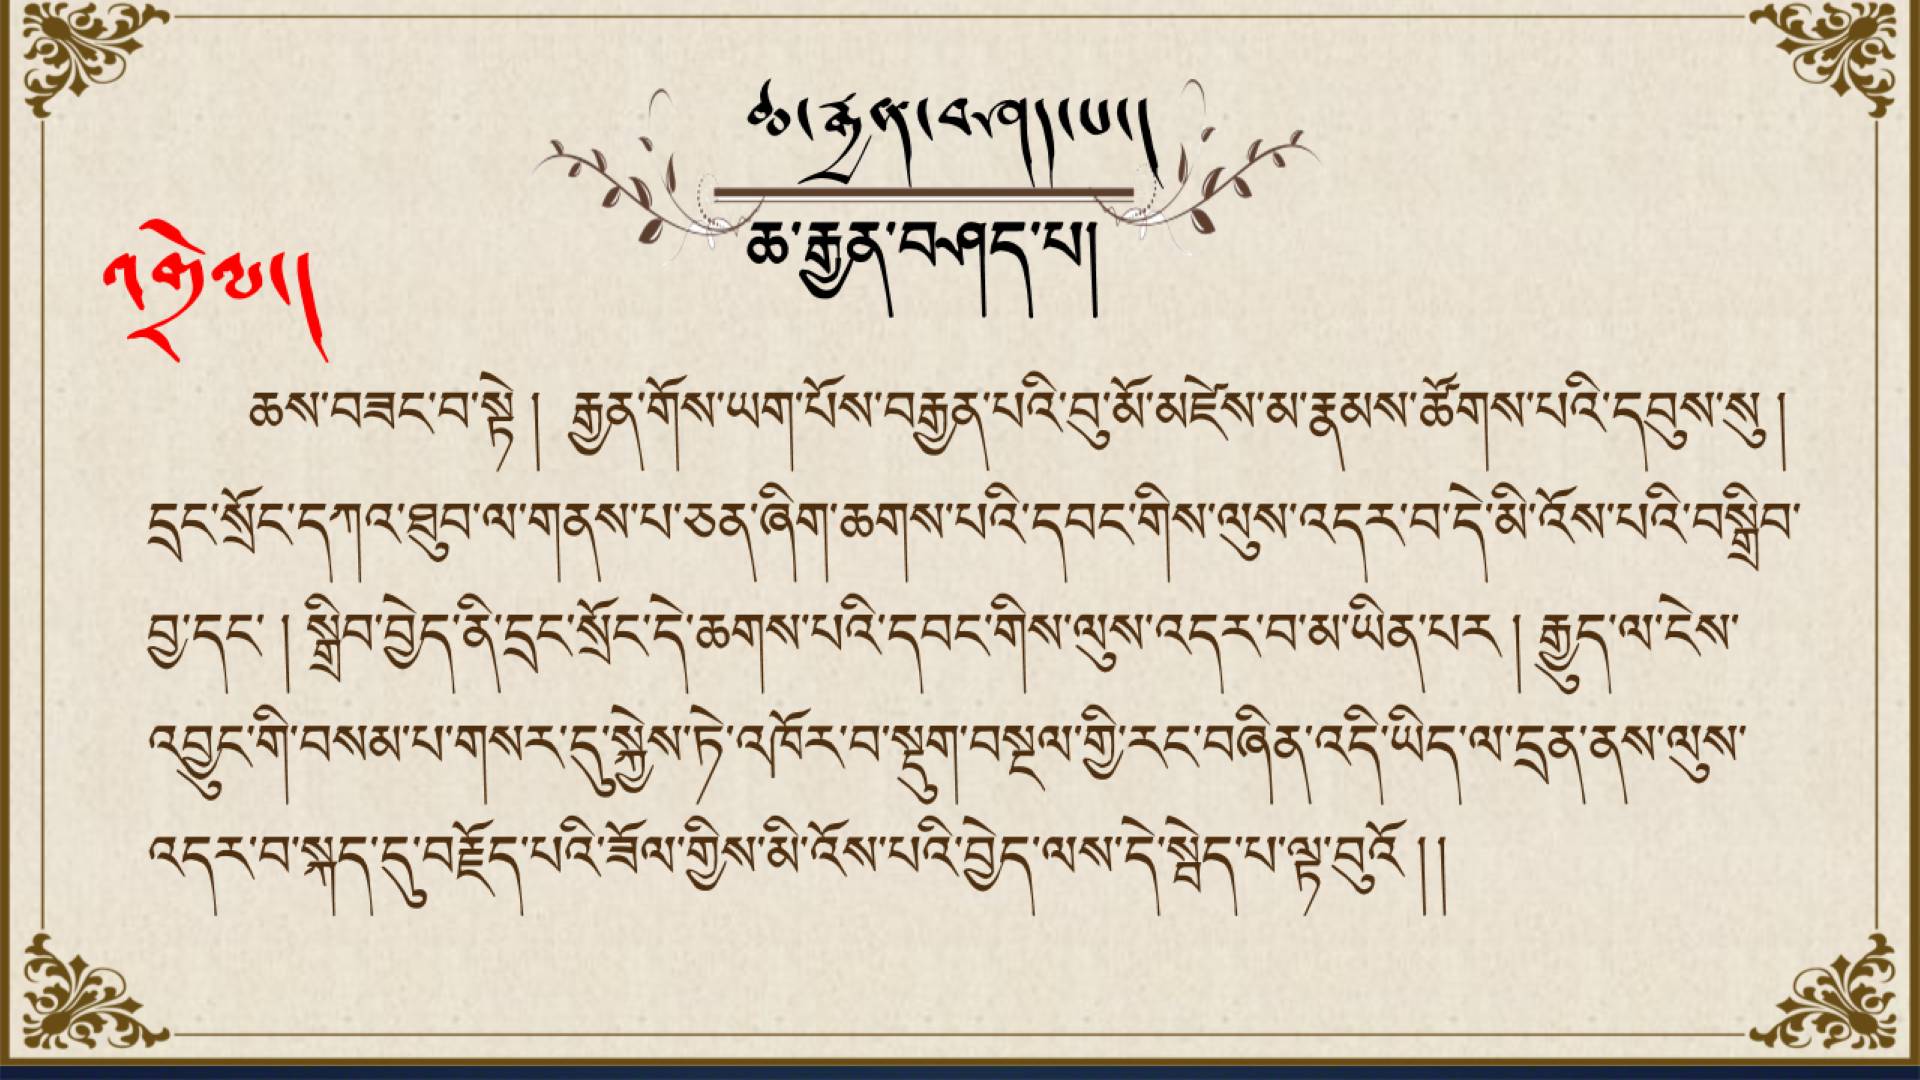 ཆ་རྒྱན་བཤད་པ།།
ཆ་རྒྱན་བཤད་པ།
འགྲེལ།།
ཆས་བཟང་བ་སྟེ། རྒྱན་གོས་ཡག་པོས་བརྒྱན་པའི་བུ་མོ་མཛེས་མ་རྣམས་ཚོགས་པའི་དབུས་སུ།
དྲང་སྲོང་དཀའ་ཐུབ་ལ་གནས་པ་ཅན་ཞིག་ཆགས་པའི་དབང་གིས་ལུས་འདར་བ་དེ་མི་འོས་པའི་བསྒྲིབ་
བྱ་དང་། སྒྲིབ་བྱེད་ནི་དྲང་སྲོང་དེ་ཆགས་པའི་དབང་གིས་ལུས་འདར་བ་མ་ཡིན་པར། རྒྱུད་ལ་ངེས་
འབྱུང་གི་བསམ་པ་གསར་དུ་སྐྱེས་ཏེ་འཁོར་བ་སྡུག་བསྔལ་གྱི་རང་བཞིན་འདི་ཡིད་ལ་དྲན་ནས་ལུས་
འདར་བ་སྐད་དུ་བརྗོད་པའི་ཟོལ་གྱིས་མི་འོས་པའི་བྱེད་ལས་དེ་སྦེད་པ་ལྟ་བུའོ།།